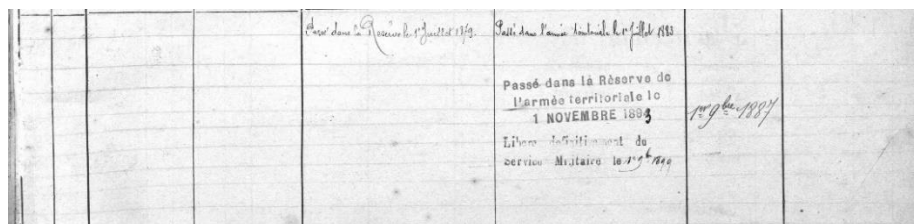 Passé dans la Réserve le 1er Juillet 1879.
Passé dans l'armée territoriale le 1er Juillet 1883
Passé dans la Réserve de
l'armée territoriale le
1 NOVEMBRE 1893
Libéré définitivement du
service Militaire le 1er 9bre 1899
1er 9bre 1887